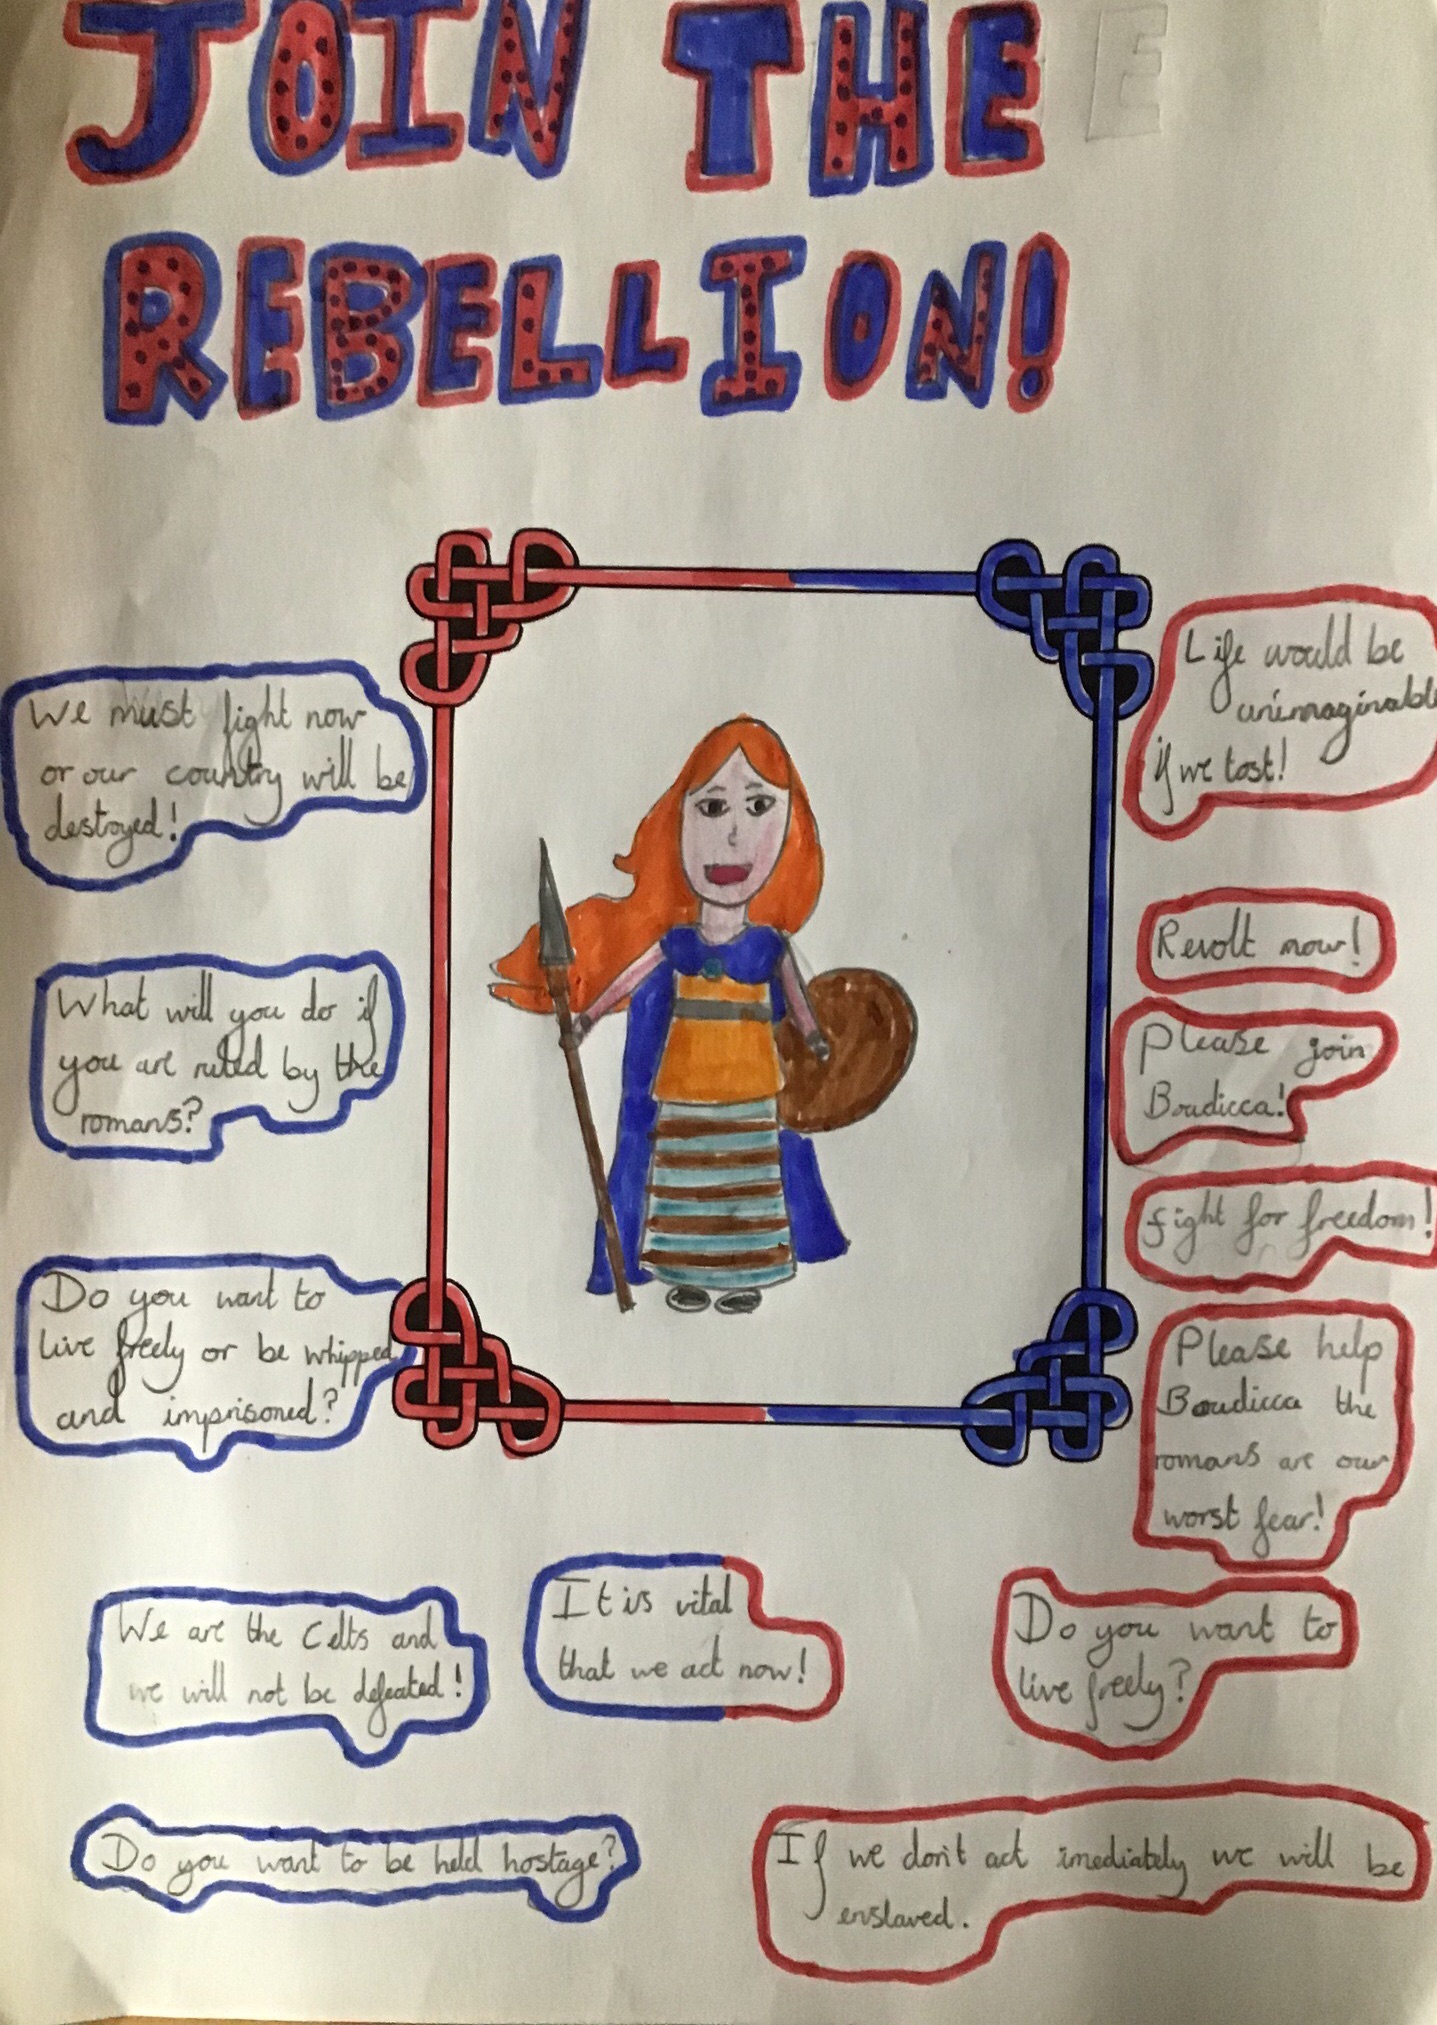 JOIN THE E
REBELLION!
We must fight now
or our country will be
destroyed!
What will you do if
you are ruled by the
romans?
Do you want to
live freely or be whipped
and imprisoned?
Life would be
unimaginable
if we lost!
Revolt now!
Please join
Boudicca!
fight for freedom!
Please help
Boudicca the
romans are our
worst fear!
We are the Celts and
we will not be defeated!
It is vital
that we act now!
Do you want to
live freely?
Do you want to be held hostage?
If we don't act imediately we will be
enslaved.